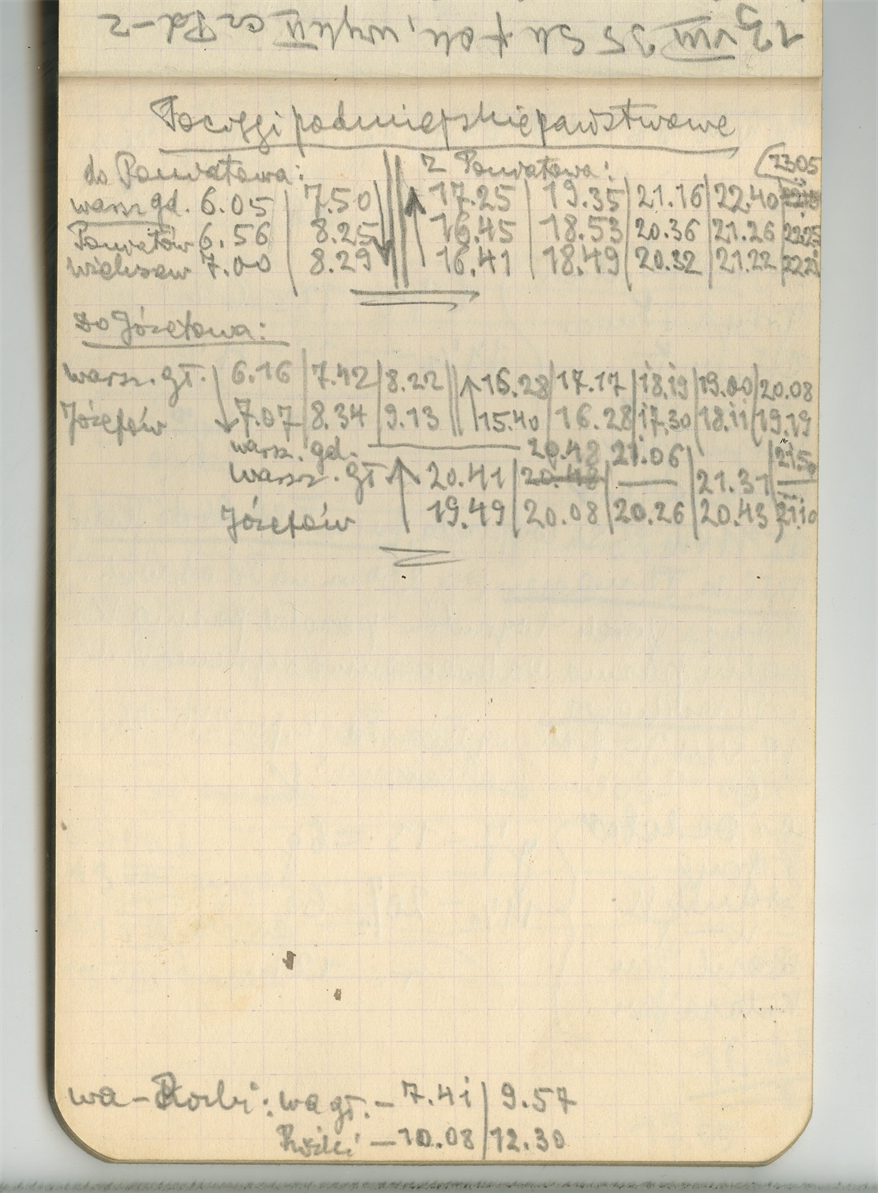 13 VIII 35
Pociągi podmiejskie państwowe
do Pomiatowa: z Pomiatowa: (23.05
warsz gd. 6.05 | 7.50 17.25 | 19.35 | 21.16 | 22.40
6.56 | 8.25 16.45 | 18.53 | 20.36 | 21.26 | 22.25
7.00 | 8.29 16.41 | 18.49 | 20.32 | 21.22 | 22.21
Do Józefowa:
warsz. gł. 6.16 | 7.42 | 8.22 16.28 | 17.17 | 18.19 | 19.00 | 20.08
Józefów 7.07 | 8.34 | 9.13 15.40 | 16.28 | 17.30 | 18.11 | 19.19
warsz. gd. 20.48 21.06
warsz. gł 20.41 | 20.48 | — | 21.31 | —
Józefów 19.49 | 20.08 | 20.26 | 20.43 | 21.10
wa – : wa gł. – 7.41 | 9.57
– 10.08 | 12.30